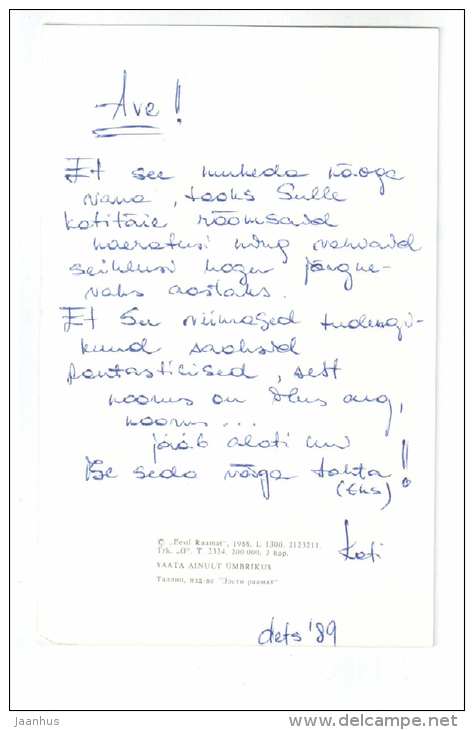 Ave!
Et see muheda näoga
vana, tooks Sulle
kotitäie rõõmsaid
naeratusi ning vahvaid
seiklusi kogu järgne-
vaks aastaks.
Et Su viimased tudengi-
kuud saaksid
fantastilised, sest
noorus on ilus aeg,
noorus ...
jääb alati kui
ise seda väga tahta!
(Eks)
Kati
© „Eesti Raamat", 1988. L 1300. 1123211.
Trk. „O". T. 2334. 200 000. 3 kop.
SAATA AINULT ÜMBRIKUS
Таллин, изд-во "Ээсти раамат"
dets '89
© delcampe.net
jaanhus